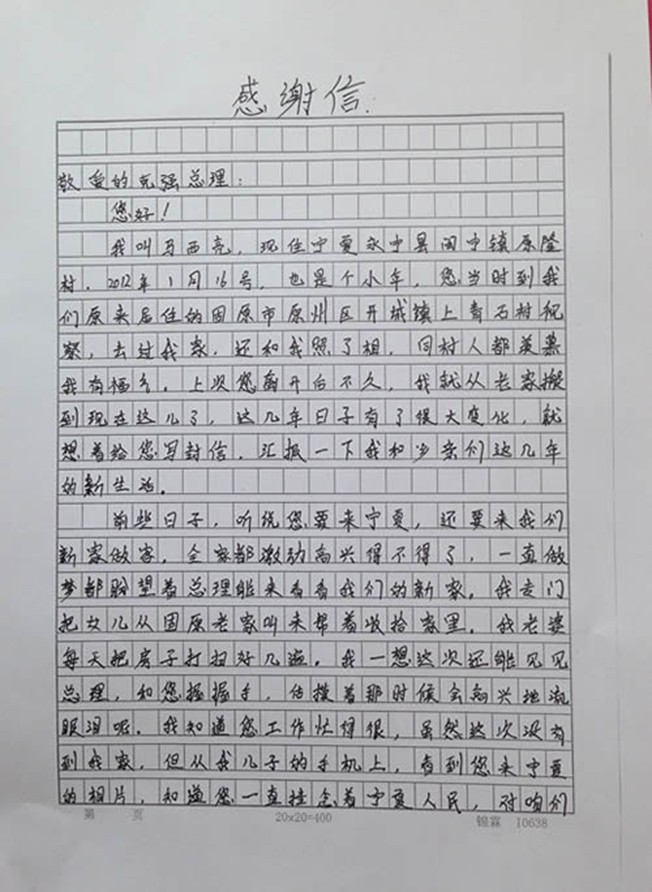 感谢信.
敬爱的克强总理：
您好！
我叫马西亮，现住宁夏永宁县闽宁镇原隆
村。2012年1月16号，也是个小年，您当时到我
们原来居住的固原市原州区开城镇上青石村视
察，去过我家，还和我照了相，同村人都羡慕
我有福气。上次您离开后不久，我就从老家搬
到现在这儿了，这几年日子有了很大变化，就
想着给您写封信，汇报一下我和乡亲们这几年
的新生活。
前些日子，听说您要来宁夏，还要来我们
新家做客，全家都激动高兴得不得了，一直做
梦都盼望着总理能来看看我们的新家。我专门
把女儿从固原老家叫来帮着收拾家里。我老婆
每天把房子打扫好几遍。我一想这次还能见见
总理，和您握握手，估摸着那时候会高兴地流
眼泪呢。我知道您工作忙得很，虽然这次没有
到我家，但从我儿子的手机上，看到您来宁夏
的相片，知道您一直挂念着宁夏人民，对咱们
第 页 20x20=400 锦霖 10638